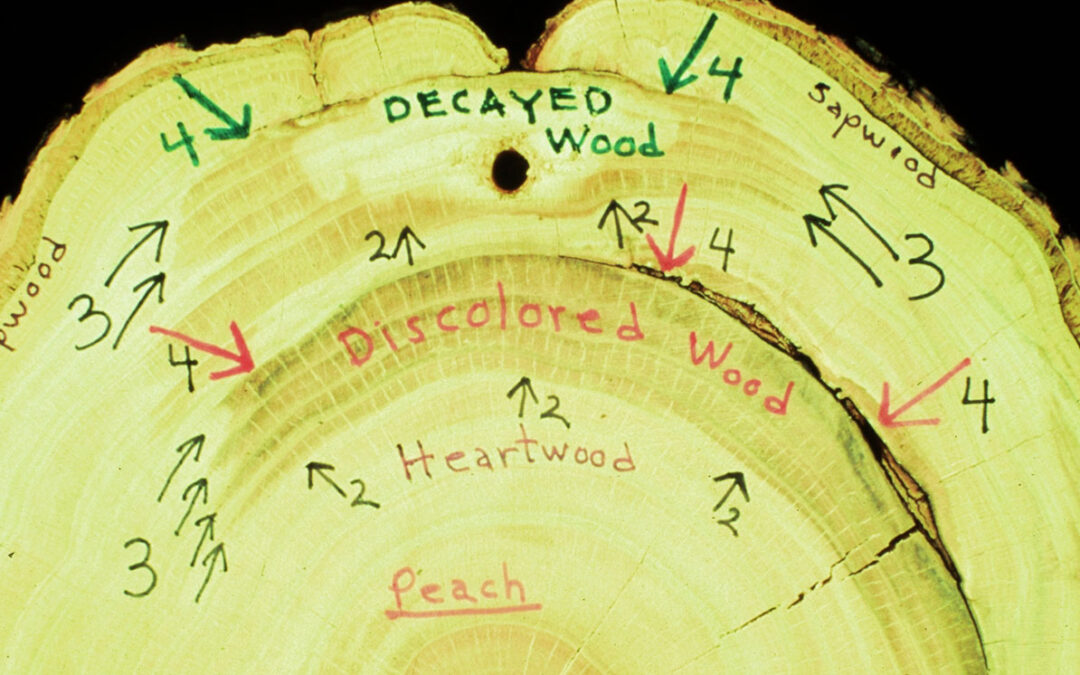 4
DECAYED
Wood
4
Sapwood
pwood
3
2
2
4
3
4
Discolored Wood
4
2
Heartwood
2
2
3
Peach